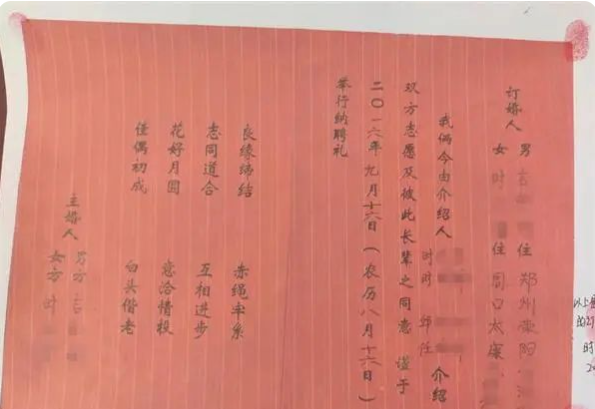 订婚人
男 吉 住 郑州荥阳
女 时 住 周口太康
我俩今由介绍人 时时 邱任 介绍
双方志愿及彼此长辈之同意 谨于
二〇一六年九月十六日(农历八月十六日)
举行纳聘礼
良缘缔结 赤绳牵系
志同道合 互相进步
花好月圆 意洽情投
佳偶初成 白头偕老
主婚人
男方 吉
女方 时
以上
时